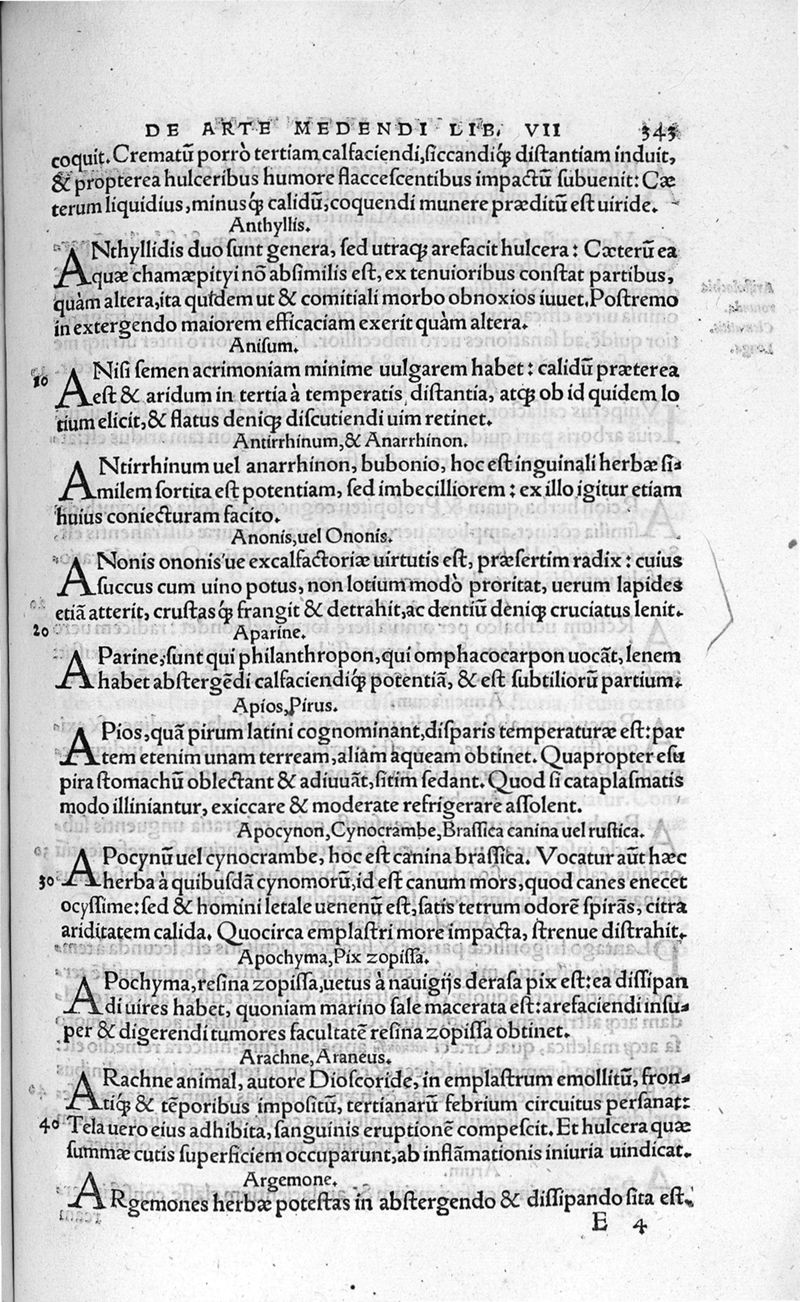 DE ARTE MEDENDI LIB. VII 343
coquit. Crematũ porrò tertiam calfaciendi, ſiccandiq́ꝫ diſtantiam induit,
& propterea hulceribus humore flacceſcentibus impactũ ſubuenit: Cæ
terum liquidius, minusq́ꝫ calidũ, coquendi munere præditũ eſt uiride.
Anthyllis.
ANthyllidis duo ſunt genera, ſed utraqꝫ arefacit hulcera: Cæterũ ea
quæ chamæpityi nõ abſimilis eſt, ex tenuioribus conſtat partibus,
quàm altera, ita quidem ut & comitiali morbo obnoxios iuuet. Poſtremo
in extergendo maiorem efficaciam exerit quàm altera.
Aniſum.
10 ANiſi ſemen acrimoniam minime uulgarem habet: calidũ præterea
eſt & aridum in tertia à temperatis diſtantia, atqꝫ ob id quidem lo
tium elicit, & flatus deniqꝫ diſcutiendi uim retinet.
Antirrhinum, & Anarrhinon.
ANtirrhinum uel anarrhinon, bubonio, hoc eſt inguinali herbæ ſi-
milem ſortita eſt potentiam, ſed imbecilliorem: ex illo igitur etiam
huius coniecturam facito.
Anonis, uel Ononis.
ANonis ononis'ue excalfactoriæ uirtutis eſt, præſertim radix: cuius
ſuccus cum uino potus, non lotium modò proritat, uerum lapides
etiã atterit, cruſtasq́ꝫ frangit & detrahit, ac dentiũ deniqꝫ cruciatus lenit.
20 Aparine.
AParine, ſunt qui philanthropon, qui omphacocarpon uocãt, lenem
habet abſtergẽdi calfaciendiq́ꝫ potentiã, & eſt ſubtiliorũ partium.
Apios, Pirus.
APios, quã pirum latini cognominant, diſparis temperaturæ eſt: par
tem etenim unam terream, aliam aqueam obtinet. Quapropter eſu
pira ſtomachũ oblectant & adiuuãt, ſitim ſedant. Quod ſi cataplaſmatis
modo illiniantur, exiccare & moderate refrigerare aſſolent.
Apocynon, Cynocrambe, Braſſica canina uel ruſtica.
APocynũ uel cynocrambe, hoc eſt canina braſſica. Vocatur aũt hæc
30 herba à quibuſdã cynomorũ, id eſt canum mors, quod canes enecet
ocyſſime: ſed & homini letale uenenũ eſt, ſatis tetrum odorẽ ſpirãs, citra
ariditatem calida. Quocirca emplaſtri more impacta, ſtrenue diſtrahit.
Apochyma, Pix zopiſſa.
APochyma, reſina zopiſſa, uetus à nauigijs deraſa pix eſt: ea diſſipan
di uires habet, quoniam marino ſale macerata eſt: arefaciendi inſu-
per & digerendi tumores facultatẽ reſina zopiſſa obtinet.
Arachne, Araneus.
ARachne animal, autore Dioſcoride, in emplaſtrum emollitũ, fron-
tiq́ꝫ & tẽporibus impoſitũ, tertianarũ febrium circuitus perſanat:
40 Tela uero eius adhibita, ſanguinis eruptionẽ compeſcit. Et hulcera quæ
ſummæ cutis ſuperficiem occuparunt, ab inflãmationis iniuria uindicat.
Argemone.
ARgemones herbæ poteſtas in abſtergendo & diſſipando ſita eſt,
E 4